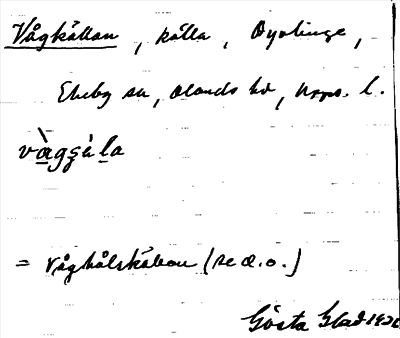 Vågkällan, källa, Dyvlinge,
Ekeby sn, Olands hd, Upps. l.
vàgʂä̀la
= Våghålskällan (se d. o.)
Gösta Glad